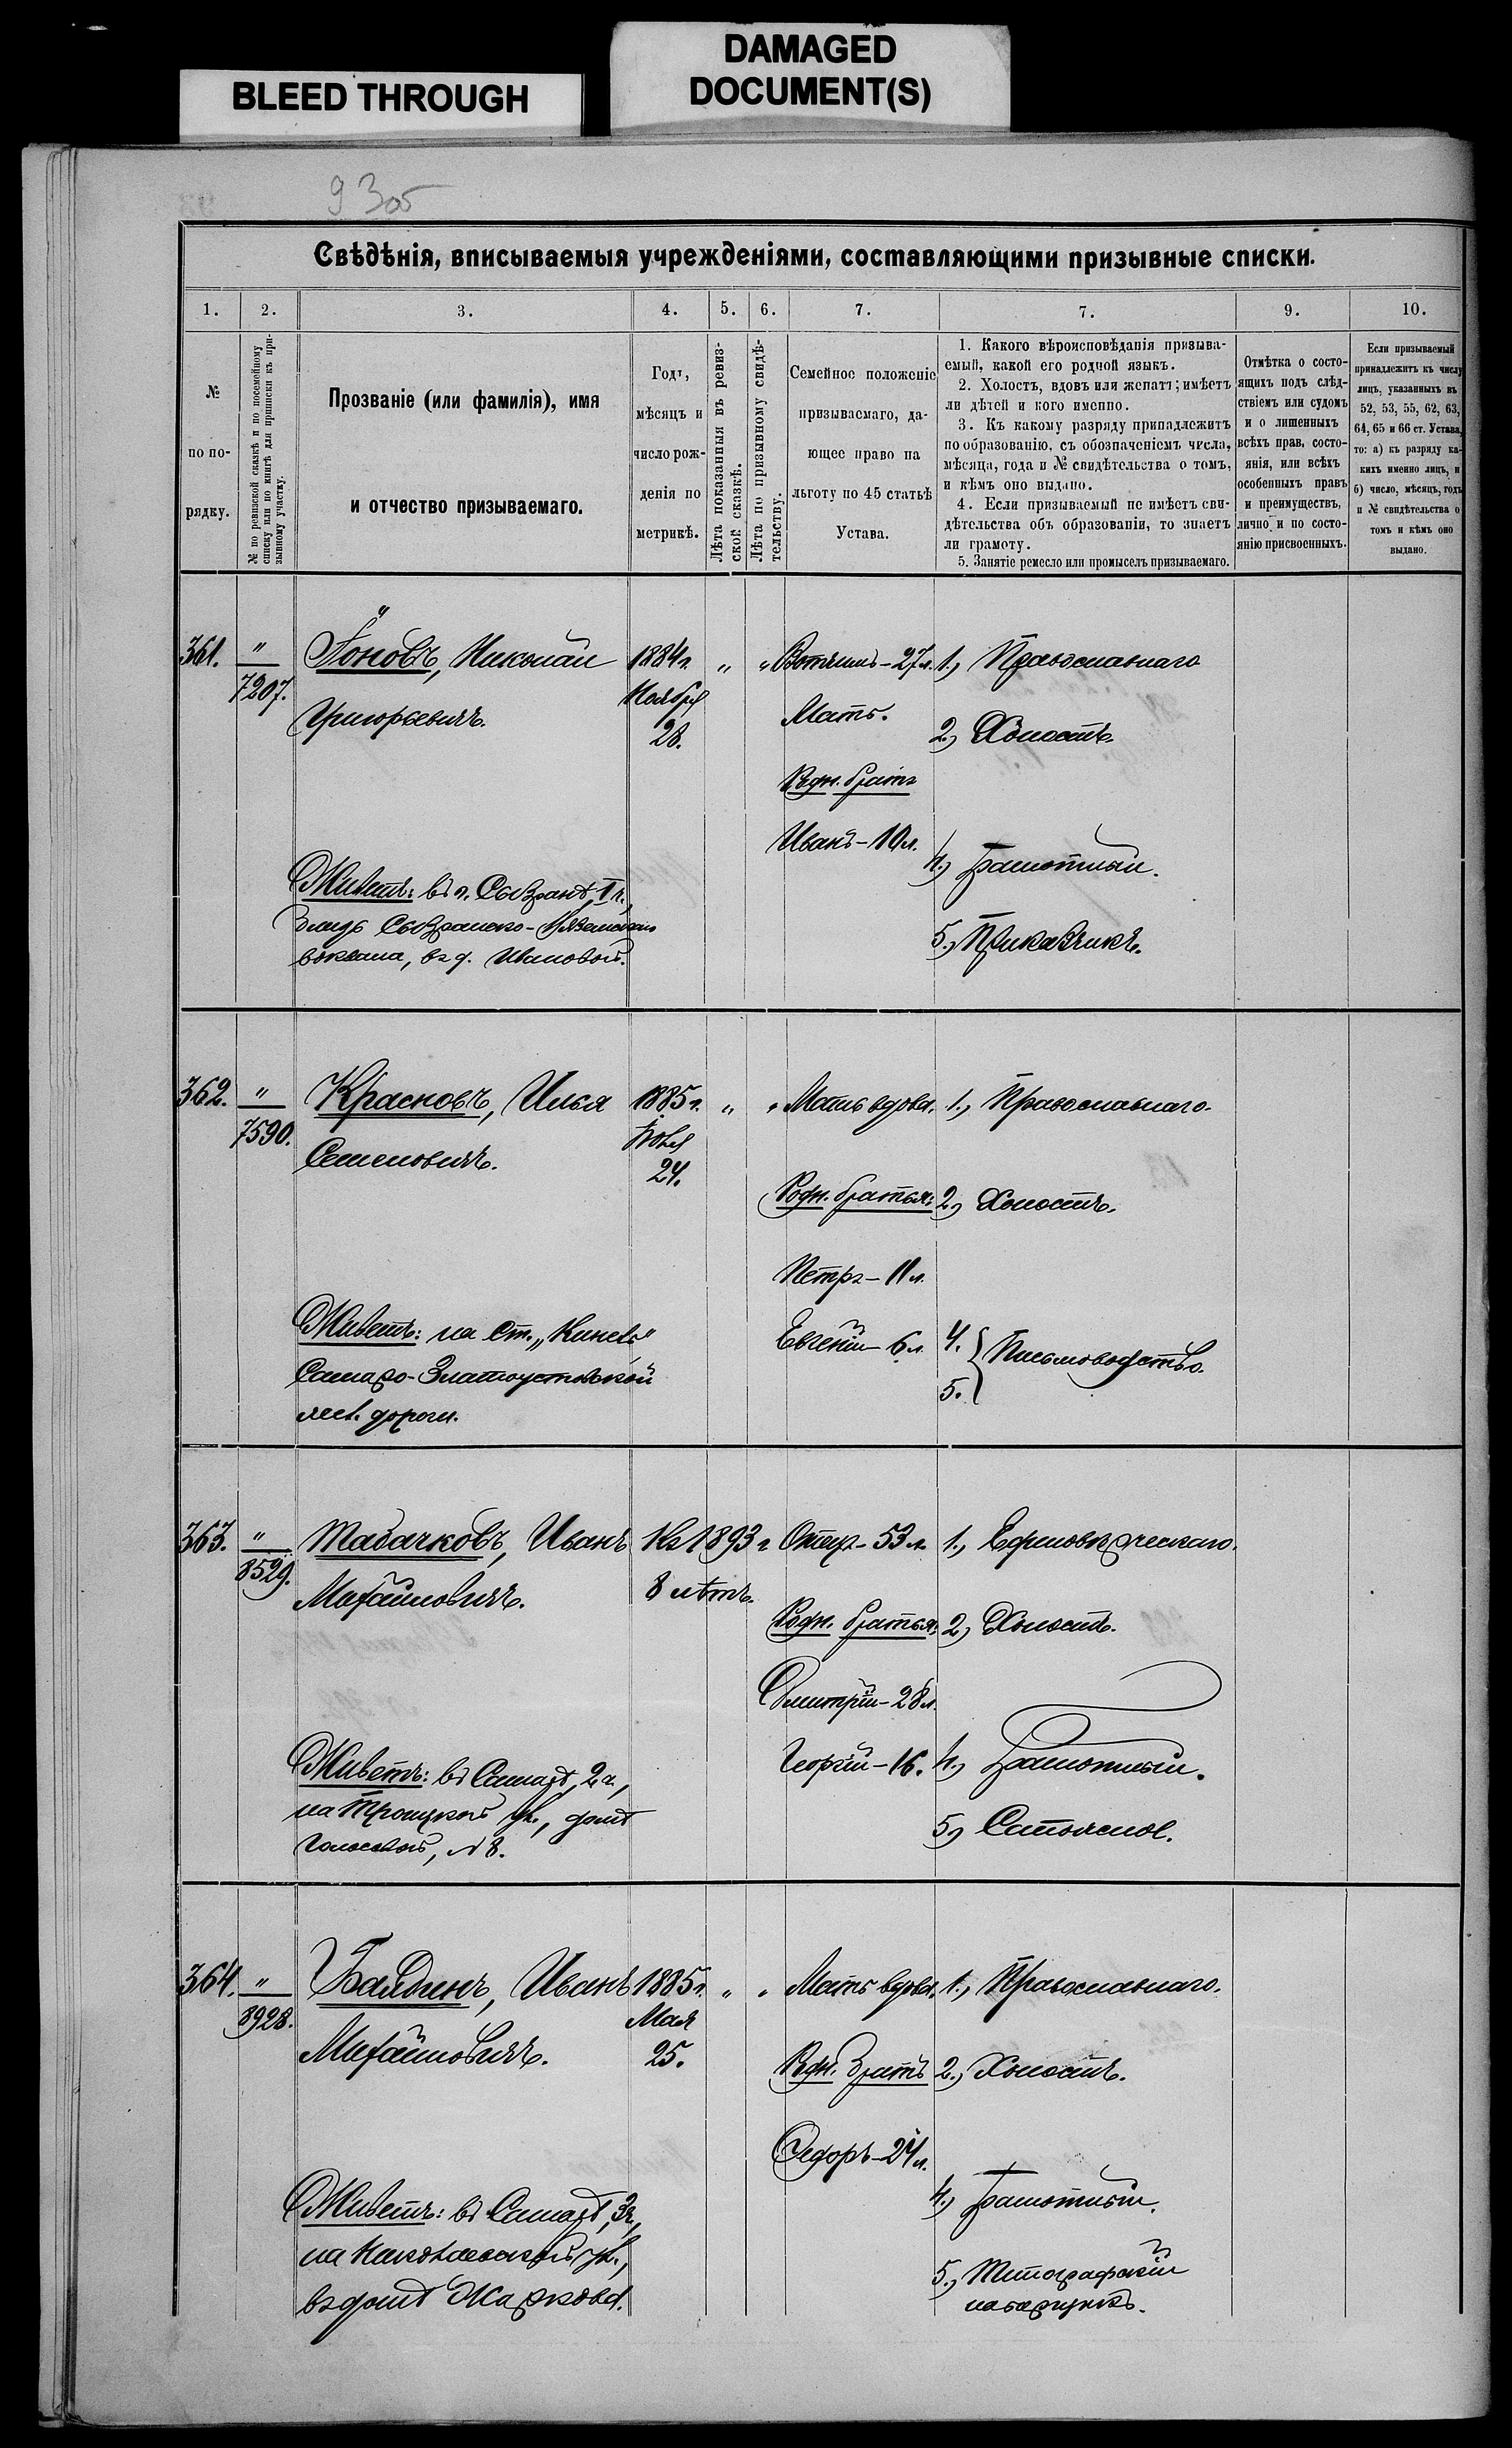 BLEED THROUGH
DAMAGED
DOCUMENT(S)
93об
Свѣдѣнія, вписываемыя учрежденіями, составляющими призывные списки.
1. 2. 3. 4. 5. 6. 7. 7. 9. 10.
№
по по-
рядку.
№ по ревизской сказкѣ и по посемейному
списку или по книгѣ для приписки къ при-
зывному участку.
Прозваніе (или фамилія), имя
и отчество призываемаго.
Годъ,
мѣсяцъ и
число рож-
денія по
метрикѣ.
Лѣта показанныя въ ревиз-
ской сказкѣ.
Лѣта по призывному свидѣ-
тельству.
Семейное положеніе
призываемаго, да-
ющее право на
льготу по 45 статьѣ
Устава.
1. Какого вѣроисповѣданія призыва-
емый, какой его родной языкъ.
2. Холостъ, вдовъ или женатъ; имѣетъ
ли дѣтей и кого именно.
3. Къ какому разряду принадлежитъ
по образованію, съ обозначеніемъ числа,
мѣсяца, года и № свидѣтельства о томъ,
и кѣмъ оно выдано.
4. Если призываемый не имѣетъ сви-
дѣтельства объ образованіи, то знаетъ
ли грамоту.
5. Занятіе ремесло или промыселъ призываемаго.
Отмѣтка о состо-
ящихъ подъ слѣд-
ствіемъ или судомъ
и о лишенныхъ
всѣхъ прав, состо-
янія, или всѣхъ
особенныхъ правъ
и преимуществъ,
лично и по состо-
янію присвоенныхъ.
Если призываемый
принадлежитъ къ числу
лицъ, указанныхъ въ
52, 53, 55, 62, 63,
64, 65 и 66 ст. Устава,
то: а) къ разряду ка-
кихъ именно лицъ, и
б) число, мѣсяцъ, годъ
и № свидѣтельства о
томъ и кѣмъ оно
выдано.
361. " 7207.
Гоновъ, Николай
Григорьевичъ.
Живетъ: въ г. Сызрань, I ч.,
близь Сызранско-Вяземскаго
вокзала, въ д. Ивановой.
1884 г.
Ноября
28.
" "
Вотчимъ - 27 л.
Мать.
Родн. братъ
Иванъ - 10 л.
1.) Православнаго
2.) Холостъ.
4.) Грамотный.
5.) Приказчикъ.
362. " 7590.
Красновъ, Илья
Семеновичъ.
Живетъ: на ст. „Кинель"
Самаро-Златоустовской
жел. дороги.
1885 г.
Іюля
24.
" "
Мать вдова.
Родн. братья:
Петръ - 11 л.
Евгеній - 6 л.
1.) Православнаго.
2.) Холостъ.
4.
5. Письмоводство.
363. " 8529.
Табачковъ, Иванъ
Михайловичъ.
Живетъ: въ Самарѣ, 2 ч.,
на Троицкой ул., домъ
Голосовой, № 8.
Къ 1893 г.
8 лѣтъ.
Отецъ - 53 л.
Родн. братья:
Дмитрій - 28 л.
Георгій - 16.
1.) Единовѣрческаго.
2.) Холостъ.
4.) Грамотный.
5.) Столяръ.
364. " 8928.
Балдинъ, Иванъ
Михайловичъ.
Живетъ: въ Самарѣ, 3 ч.,
на Николаевской ул.,
въ домѣ Жаркова.
1885 г.
Мая
25.
" "
Мать вдова.
Родн. братъ
Ѳедоръ - 24 л.
1.) Православнаго.
2.) Холостъ.
4.) Грамотный.
5.) Типографскій
наборщикъ.